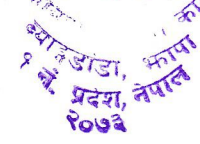 डांडा, झापा
१ नं. प्रदेश, नेपाल
२०७३